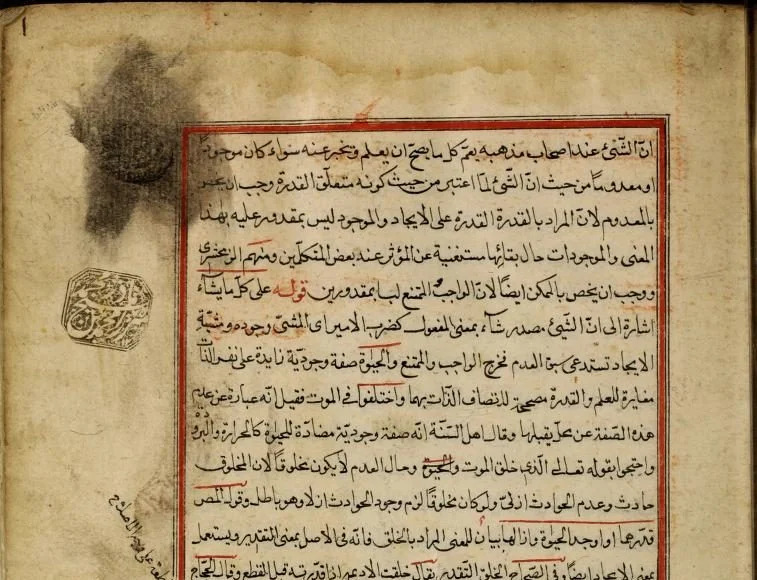 انّ الشّئ عند اصحاب مذهبه يعم كل ما يصح ان يعلم ويخبر عنه سواء كان موجوداً
او معدوماً من حيث انّ الشّئ لمّا اعتبر من حيث كونه متعلّق القدرة وجب ان
بالمعدوم لانّ المراد بالقدرة القدرة على الايجاد والموجود ليس بمقدور عليه بهذا
المعنى والموجودات حال بقائها مستغنية عن المؤثر عند بعض المتكلّمين ومنهم الزمخشرى
ووجب ان يخص بالممكن ايضاً لانّ الواجب والممتنع ليسا بمقدورين قوله على كلّ ما يشاء
اشارة الى انّ الشّئ مصدر شاء بمعنى المفعول كضرب الامير اى المشئ وجوده ومشيّة
الايجاد تستدعى سبق العدم فخرج الواجب والممتنع والحيوة صفة وجوديّة زايدة على نفس الذات
مغايرة للعلم والقدرة مصححة لاتصاف الذّات بهما واختلفوا فى الموت فقيل انّه عبارة عن عدم
هذه الصّفة عن محلّ يقبلها وقال اهل السّنّة انّه صفة وجوديّة مضادّة للحيوة كالحرارة والبرودة
واحتجوا بقوله تعالى الّذى خلق الموت والحيوة وحال العدم لا يكون مخلوقاً لان المخلوق
حادث وعدم الحوادث ازلىّ ولو كان مخلوقاً لزم وجود الحوادث ازلا وهو باطل وقول المص
قدّرهما او اوجد الحيوة وازالها بيان للمعنى المراد بالخلق فانّه فى الاصل بمعنى التقدير ويستعمل
بمعنى الايجاد ايضاً وفى الصّحاح الخلق التّقدير يقال خلقت الاديم اذا قدّرته قبل القطع وقال الحجّاج